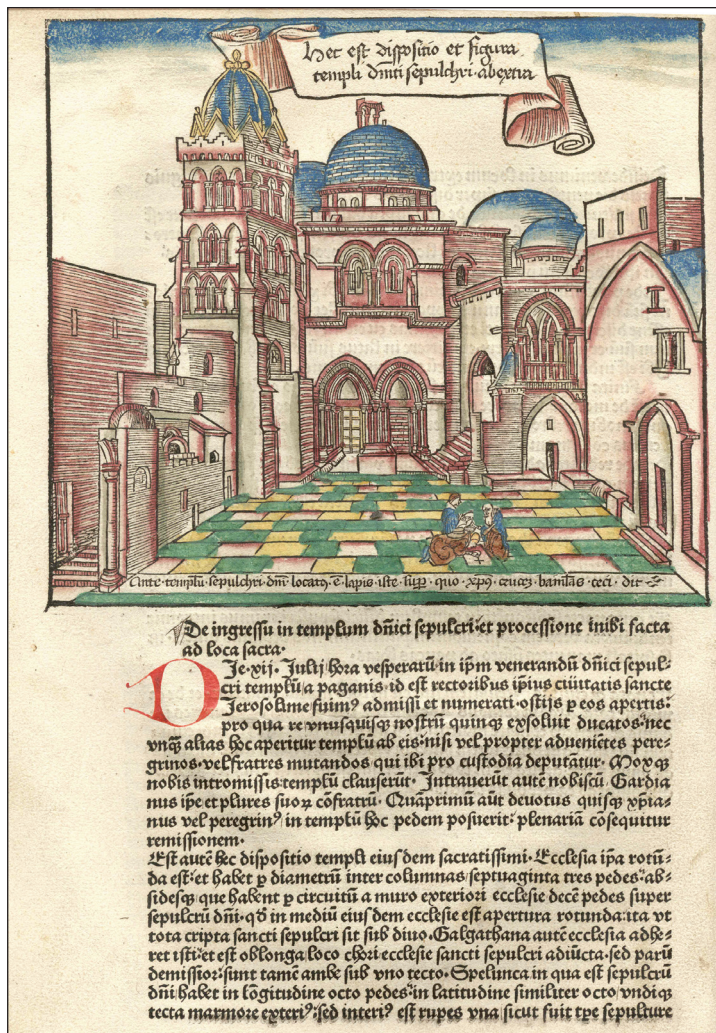 Hec est dispositio et figura
templi dn̄ici sepulchri ab extra
Ante·templū·sepulchri·dn̄i·locatꝰ·ē·lapis·iste·suꝑ·quo·xp̄ꝰ·crucē·baiulās·ceci·dit·
De ingressu in templum dn̄ici sepulcri: et processione inibi facta
ad loca sacra·
DJe·xij· Julij hora vesperarū in ip̄m venerandū dn̄ici sepul-
cri templū a paganis· id est rectoribus ip̄ius ciuitatis sancte
Jerosolime fuimꝰ admissi et numerati· ostijs ꝑ eos apertis:
pro qua re vnusquisqꝫ nostrū quinqꝫ exsoluit ducatos: nec
vnqꝫ alias hoc aperitur templū ab eis: nisi vel propter adueniētes pere-
grinos· vel fratres mutandos qui ibi pro custodia deputātur· Mox qꝫ
nobis intromissis: templū clauserūt· Intrauerūt autē nobiscū· Gardia
nus ip̄e et plures suoꝝ cōfratrū· Quāprimū aūt deuotus quisqꝫ xp̄ia-
nus vel peregrinꝰ in templū hoc pedem posuerit: plenariā cōsequitur
remissionem·
Est autē hec dispositio templi eiusdem sacratissimi· Ecclesia ip̄a rotū-
da est: et habet ꝑ diametrū inter columnas septuaginta tres pedes: ab-
sidesqꝫ que habent ꝑ circuitū a muro exteriori ecclesie decē pedes super
sepulcrū dn̄i· qđ in mediū eiusdem ecclesie est apertura rotunda: ita vt
tota cripta sancti sepulcri sit sub diuo· Galgathana autē ecclesia adhe-
ret isti: et est oblonga loco chori ecclesie sancti sepulcri adiūcta· sed parū
demissior: sunt tamē ambe sub vno tecto· Spelunca in qua est sepulcrū
dn̄i habet in lōgitudine octo pedes: in latitudine similiter octo: vndiqꝫ
tecta marmore exteriꝰ: sed interiꝰ est rupes vna sicut fuit tꝑe sepulture